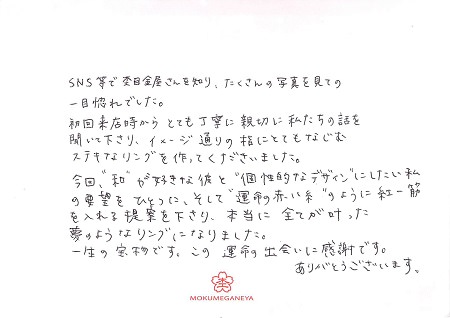 SNS等で杢目金屋さんを知り、たくさんの写真を見ての
一目惚れでした。
初回来店時から とても丁寧に親切に私たちの話を
聞いて下さり、イメージ通りの指にとてもなじむ
ステキなリングを作ってくださいました。
今回、"和"が好きな彼と"個性的なデザイン"にしたい私
の要望をひとつに、そして"運命の赤い糸"のように紅一筋
を入れる提案を下さり、本当に全てが叶った
夢のようなリングになりました。
一生の宝物です。この運命の出会いに感謝です。
ありがとうございます。
MOKUMEGANEYA